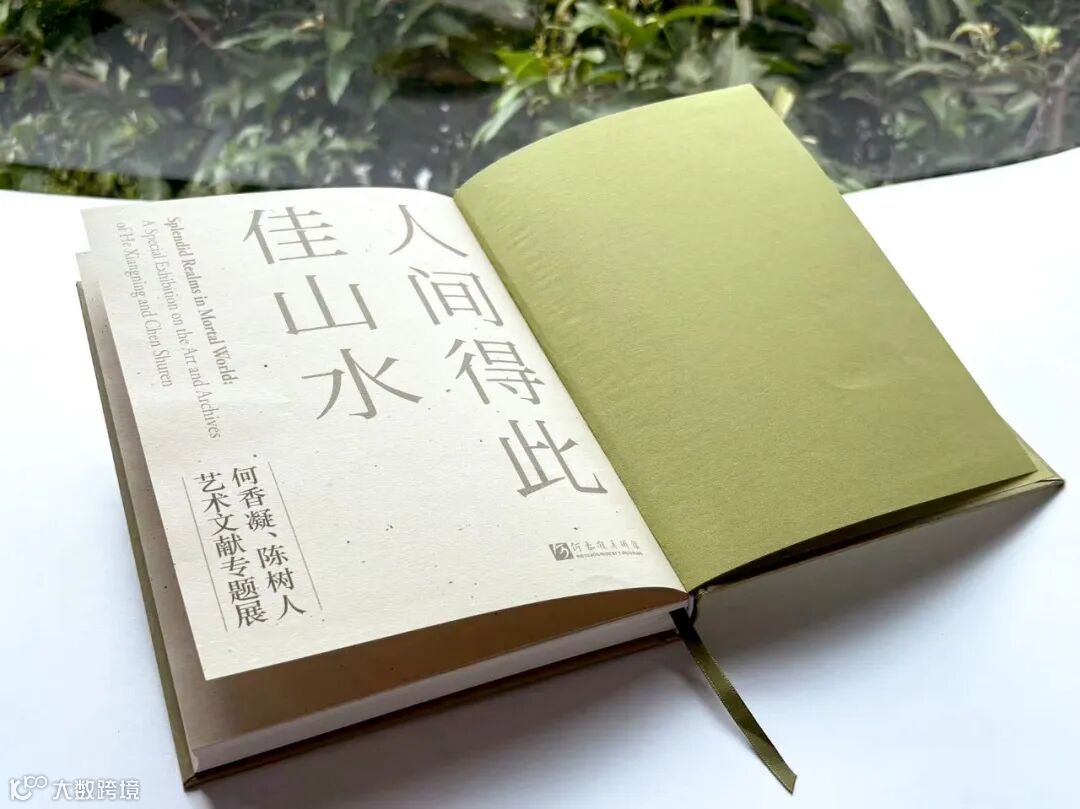 人间得此
佳山水
Splendid Realms in Mortal World:
A Special Exhibition on the Art and Archives
of He Xiangning and Chen Shuren
何香凝、陈树人
艺术文献专题展
何香凝美术馆
HE XIANGNING ART MUSEUM
大数跨境